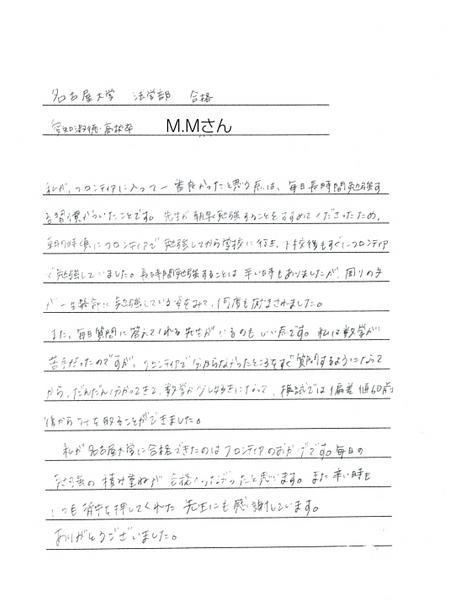 名古屋大学 法学部 合格
愛知淑徳高校卒 M.Mさん
私が、フロンティアに入って一番良かったと思う点は、毎日長時間勉強す
る習慣がついたことです。先生が朝早く勉強することをすすめてくださったため、
朝7時頃にフロンティアで勉強してから学校に行き、下校後もすぐにフロンティア
で勉強していました。長時間勉強することは辛い日もありましたが、周りの子
が一生懸命に勉強している姿をみて、何度も励まされました。
また、毎日質問に答えてくれる先生がいるのもいい点です。私は数学が
苦手だったのですが、フロンティアで分からなかったところをすぐ質問するようになって
から、だんだん分かってきて、数学が少し好きになって、模試では偏差値60前
後から を取ることができました。
私が名古屋大学に合格できたのはフロンティアのおかげです。毎日の
勉強の積み重ねが合格へつながったと思います。また辛い時も
いつも背中を押してくれた先生にも感謝しています。
ありがとうございました。